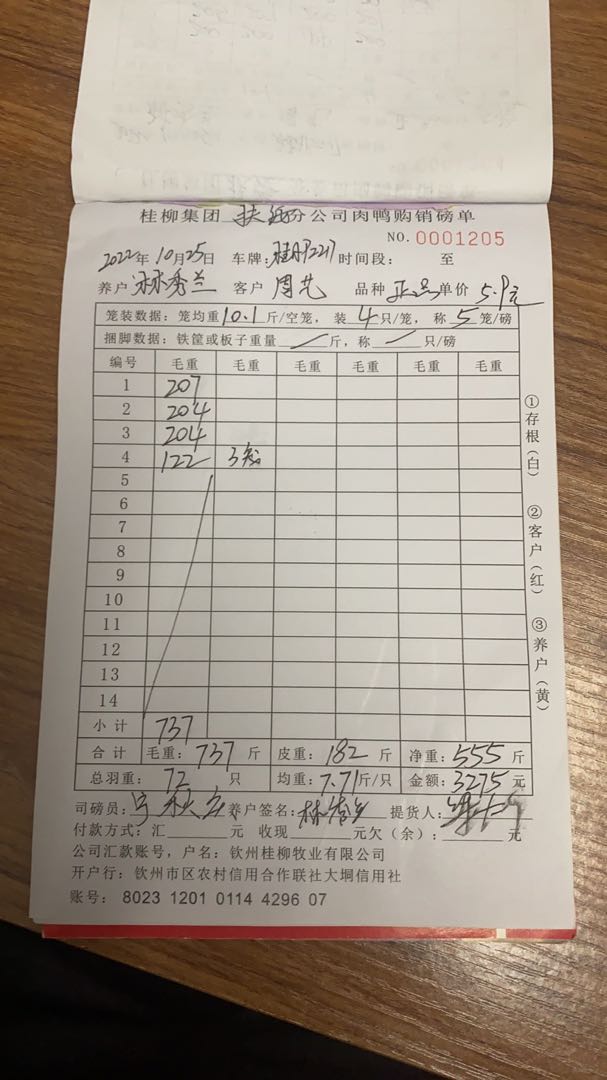 桂柳集团 分公司肉鸭购销磅单
NO. 0001205
2022年10月25日 车牌: 时间段: 至
养户 林秀兰 客户 周 品种 正品 单价 5.9元
笼装数据：笼均重10.1斤/空笼，装4只/笼，称5笼/磅
捆脚数据：铁筐或板子重量 / 斤，称 / 只/磅
编号 毛重 毛重 毛重 毛重 毛重 毛重
1 207
2 204
3 204
4 122 3笼
5
6
7
8
9
10
11
12
13
14
小计 737
合计 毛重：737斤 皮重：182斤 净重：555斤
总羽重：72只 均重：7.71斤/只 金额：3275元
司磅员： 养户签名： 提货人：
付款方式：汇 元 收现 元欠（余）： 元
公司汇款账号，户名：钦州桂柳牧业有限公司
开户行：钦州市区农村信用合作联社大垌信用社
账号：8023 1201 0114 4296 07
①存根（白）
②客户（红）
③养户（黄）